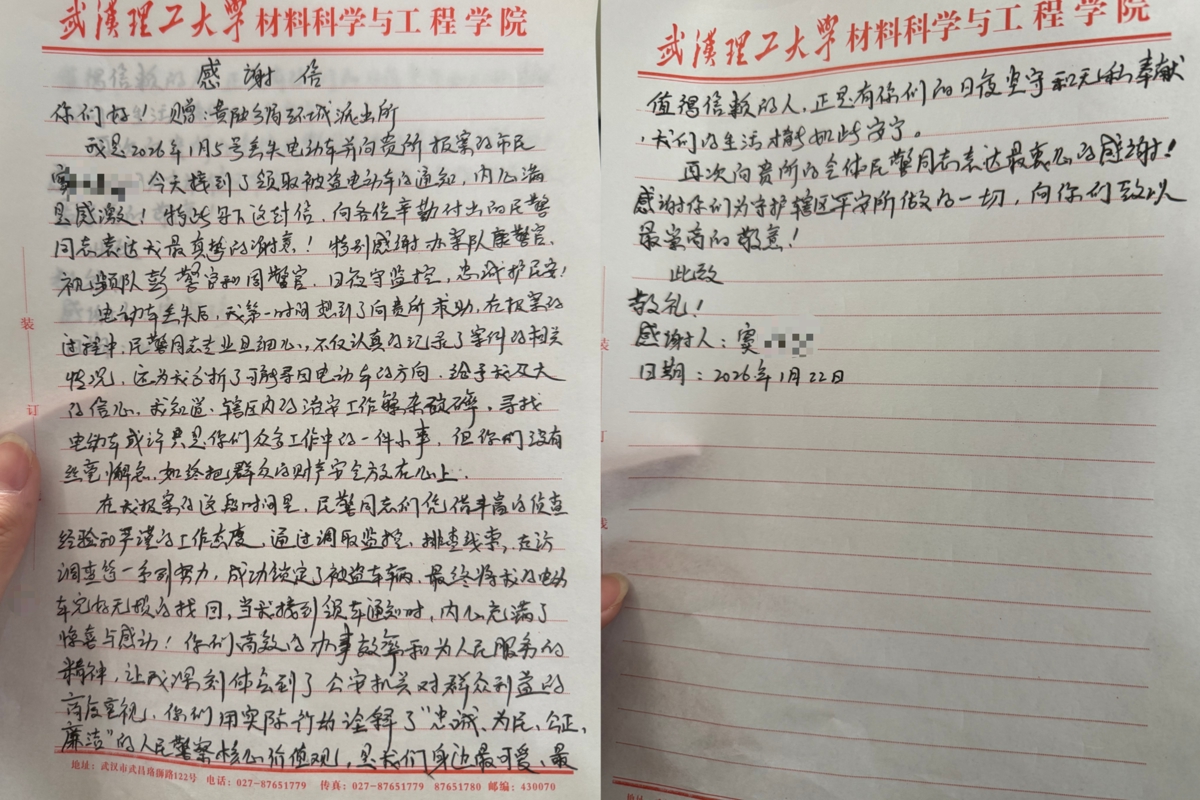 武漢理工大学 材料科学与工程学院
感谢信
你们好！赠：贵公局环城派出所
我是2026年1月5号丢失电动车并向贵所报案的市民
窦 今天接到了领取被盗电动车的通知，内心满
是感激！特此写下这封信，向各位辛勤付出的民警
同志表达我最真挚的谢意！特别感谢办案队康警官、
视频队彭警官和周警官，日夜守监控，忠诚护民安！
电动车丢失后，我第一时间想到了向贵所求助，在报案的
过程中，民警同志专业且细心，不仅认真的记录了案件的相关
情况，还为我分析了可能寻回电动车的方向，给予我极大
的信心，我知道，辖区内的治安工作繁杂破碎，寻找
电动车或许只是你们众多工作中的一件小事，但你们没有
丝毫懈怠，始终把群众的财产安全放在心上.
在我报案的这段时间里，民警同志们凭借丰富的侦查
经验和严谨的工作态度，通过调取监控，排查线索，走访
调查等一系列努力，成功锁定了被盗车辆，最终将我的电动
车完好无损的找回，当我接到领车通知时，内心充满了
惊喜与感动！你们高效的办事效率和为人民服务的
精神，让我深刻体会到了公安机关对群众利益的
高度重视，你们用实际行动诠释了“忠诚、为民、公正、
廉洁”的人民警察核心价值观，是我们身边最可爱、最
地址：武汉市武昌珞狮路122号 电话：027-87651779 传真：027-87651779 87651780 邮编：430070
装
订
武漢理工大学 材料科学与工程学院
值得信赖的人，正是有你们的日夜坚守和无私奉献
，我们的生活才能如此安宁。
再次向贵所的全体民警同志表达最衷心的感谢！
感谢你们为守护辖区平安所做的一切，向你们致以
最崇高的敬意！
此致
敬礼！
感谢人：窦
日期：2026年1月22日